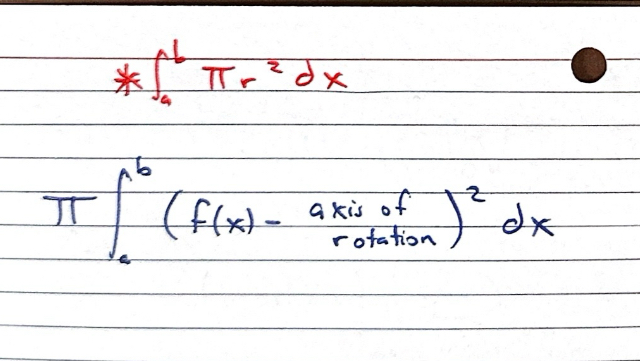 * ∫_a^b πr² dx
π ∫_a^b (f(x) - axis of rotation)² dx